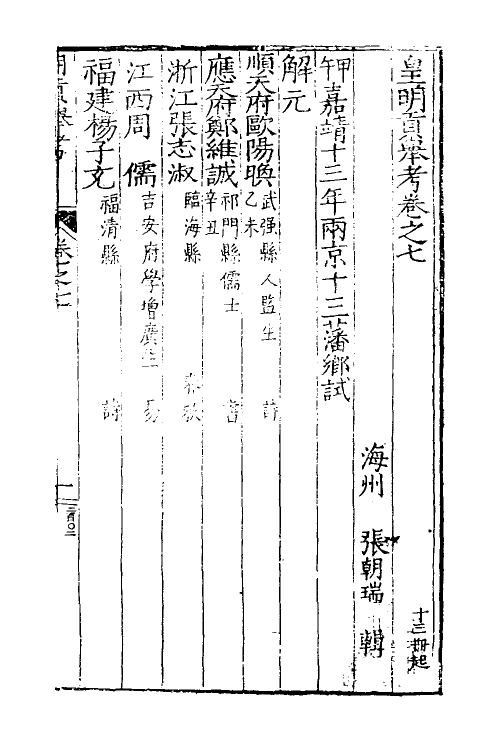 皇明貢舉考卷之七
十三冊起
海州 張朝瑞 輯
甲午嘉靖十三年兩京十三藩鄉試
解元
順天府歐陽㬇 武强縣人監生 詩
乙未
應天府鄭維誠 祁門縣儒士 書
辛丑
浙江張志淑 臨海縣 春秋
江西周 儒 吉安府學增廣生 易
福建楊子充 福清縣 詩
卷之七
一